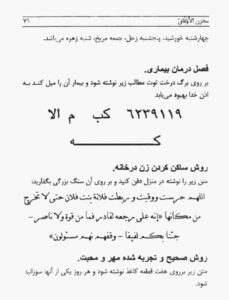 مخزن الأوفاق
۷۱
چهارشنبه خورشید، پنجشنبه زحل، جمعه مریخ، شنبه زهره می‌باشد.
فصل درمان بیماری.
بر روی برگ درخت توت مطالب زیر نوشته شود و بیمار آن را میل کند به
اذن خدا بهبود می‌یابد
۶۲۳۹۱۱۹ کب م الا
که
روش ساکن کردن زن درخانه.
متن زیر را نوشته در منزل دفن کنید و بر روی آن سنگ بزرگی بگذارید:
اللهم حرست ووقیت و ربطت فلانة بنت فلان حتی لا تخرج
من مکانها «إنه علی رجعه لقادر فما من قوة ولا ناصر -
جئنا بکم لفیفا - وقفهم نهم مسؤلون»
روش صحیح و تجربه شده مهر و محبت.
متن زیر برروی هفت قطعه کاغذ نوشته شود و هر روز یکی از آنها سوزانید
شود.